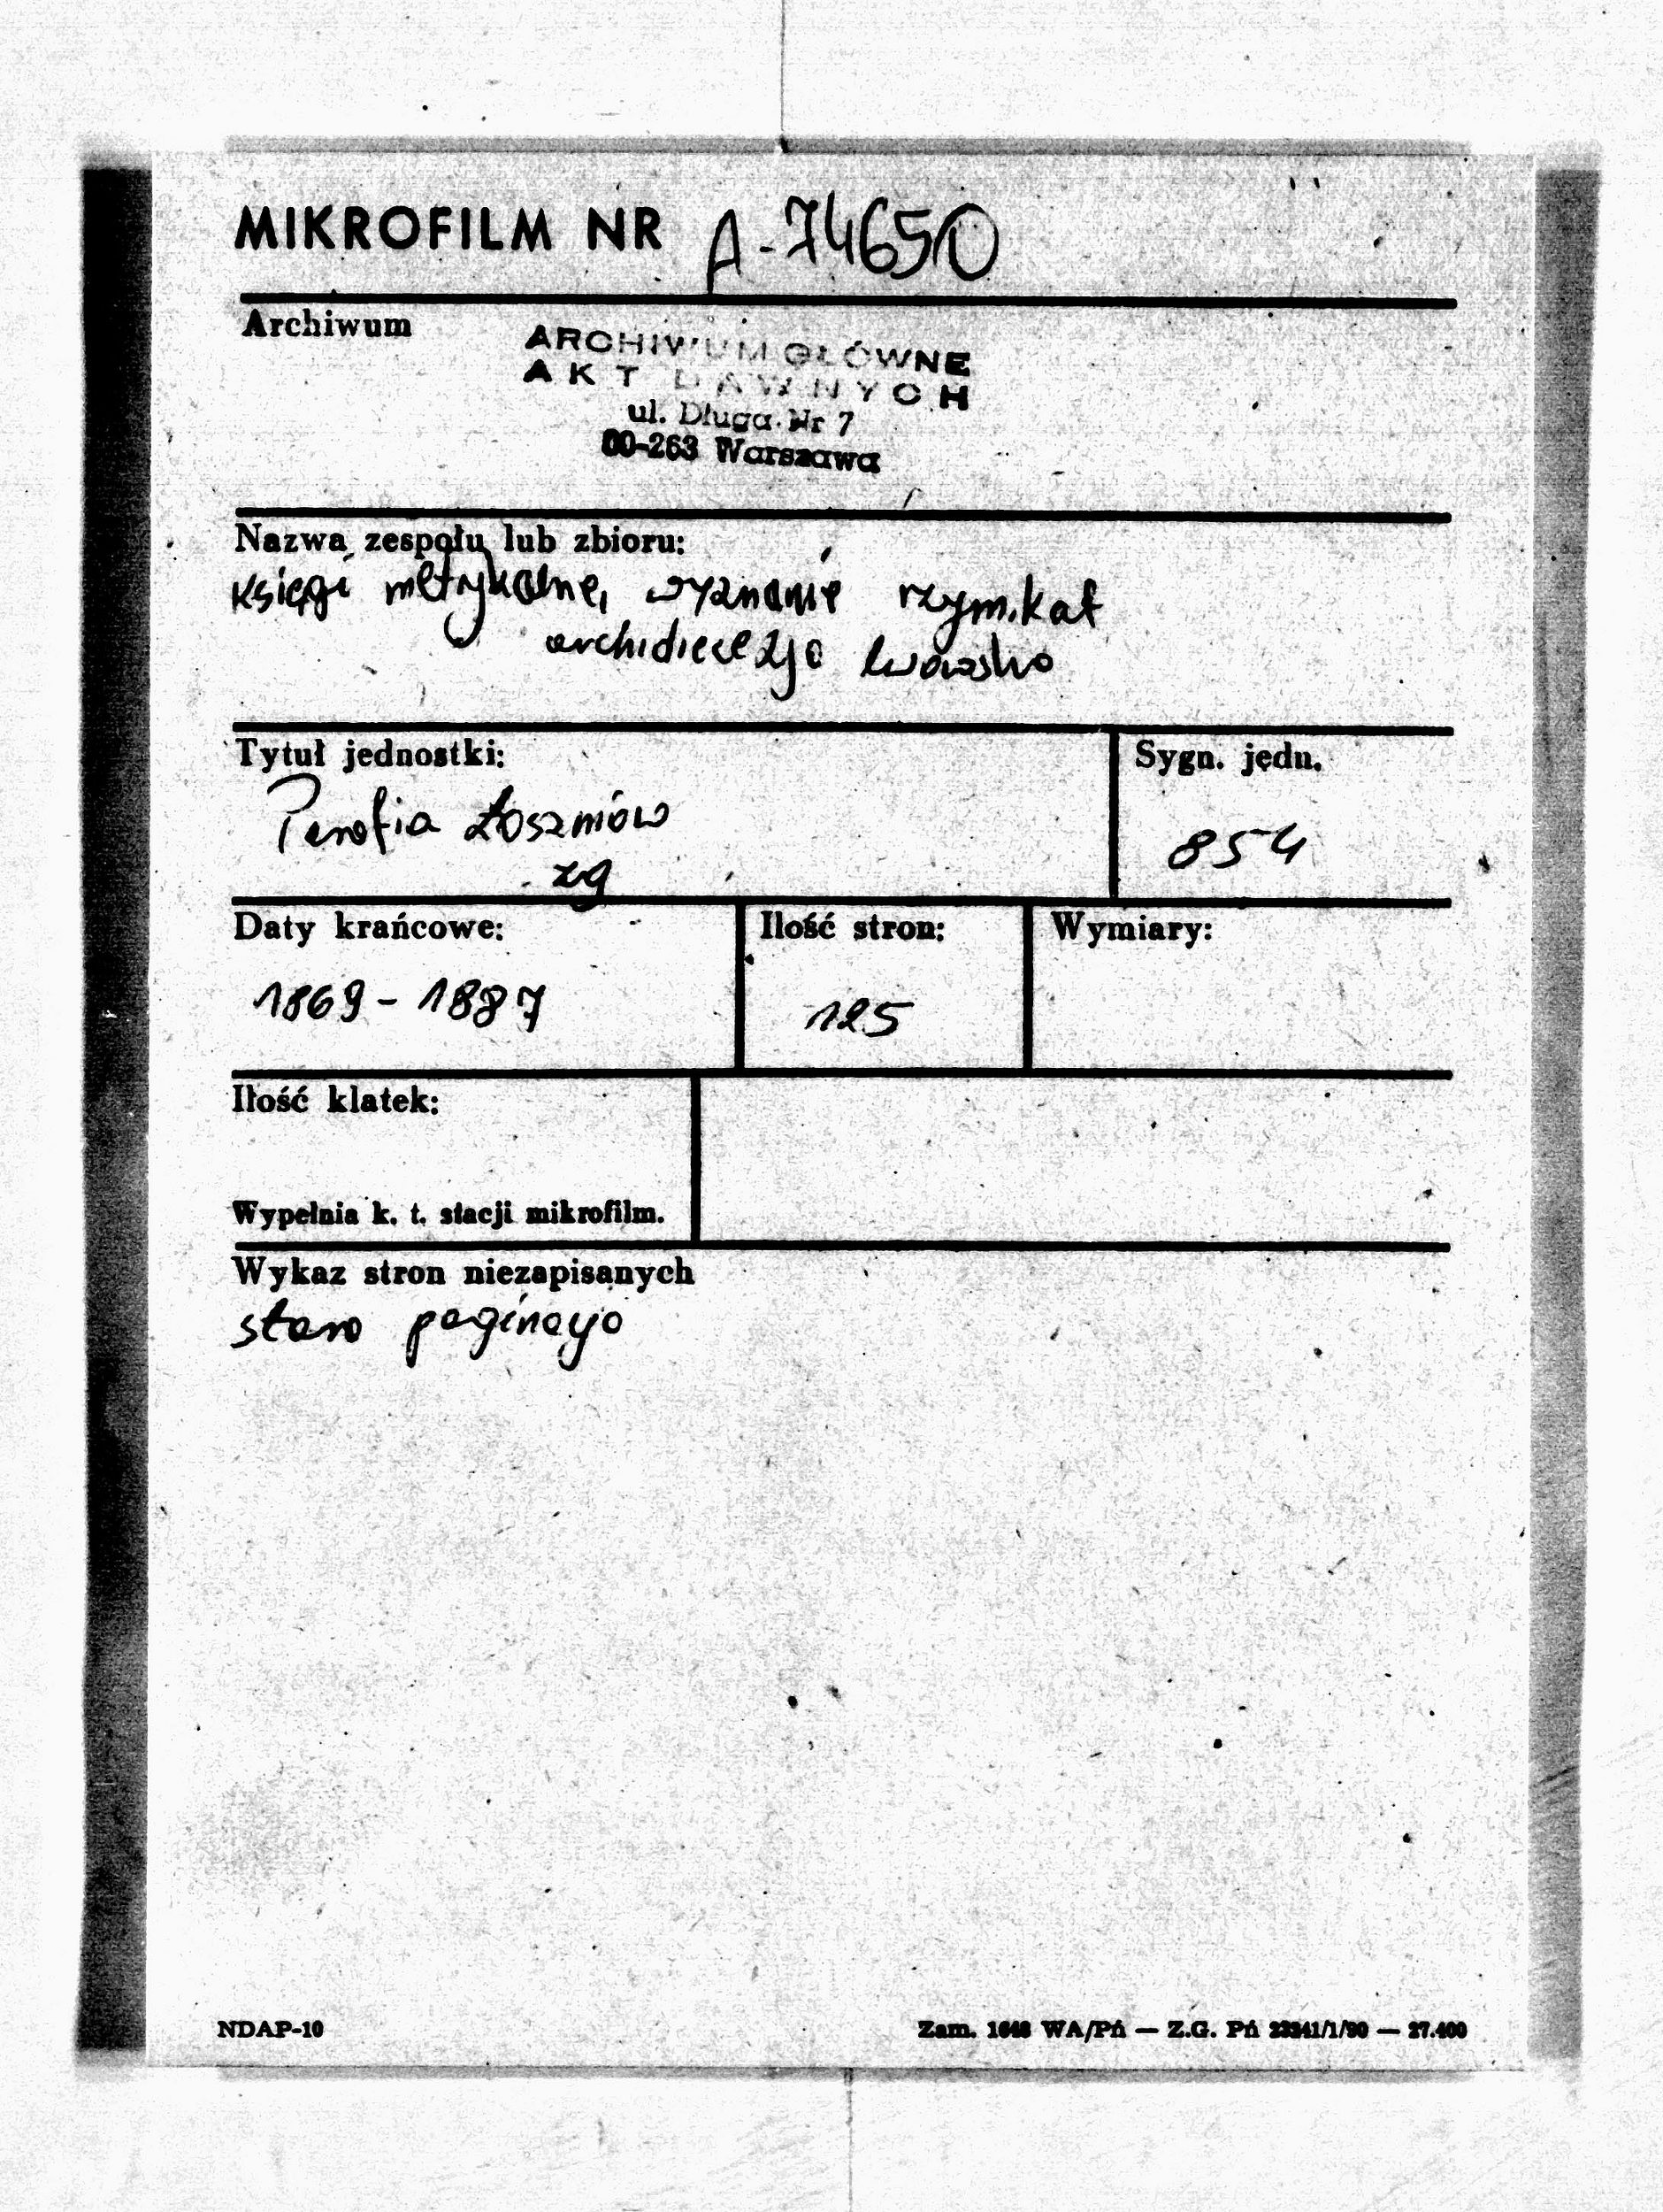 MIKROFILM NR A-74650
Archiwum
ARCHIWUM GŁÓWNE
AKT DAWNYCH
ul. Długa Nr 7
00-263 Warszawa
Nazwa zespołu lub zbioru:
księgi metrykalne, wyznanie rzym.kat
archidiecezja lwowska
Tytuł jednostki:
Sygn. jedn.
Parafia Łoszniów
854
zg
Daty krańcowe:
Ilość stron:
Wymiary:
1869 - 1887
125
Ilość klatek:
Wypełnia k. t. stacji mikrofilm.
Wykaz stron niezapisanych
stara paginacja
NDAP-10
Zam. 1648 WA/Pń — Z.G. Pń 23241/1/90 — 27.400